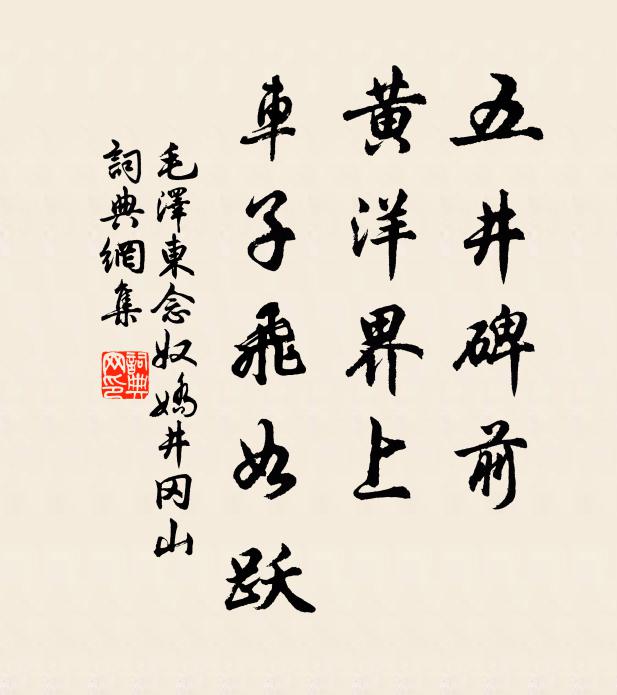 五井碑前
黄洋界上
車子飛如跃
毛澤東念奴嬌井冈山
詞典網集
詞典網印